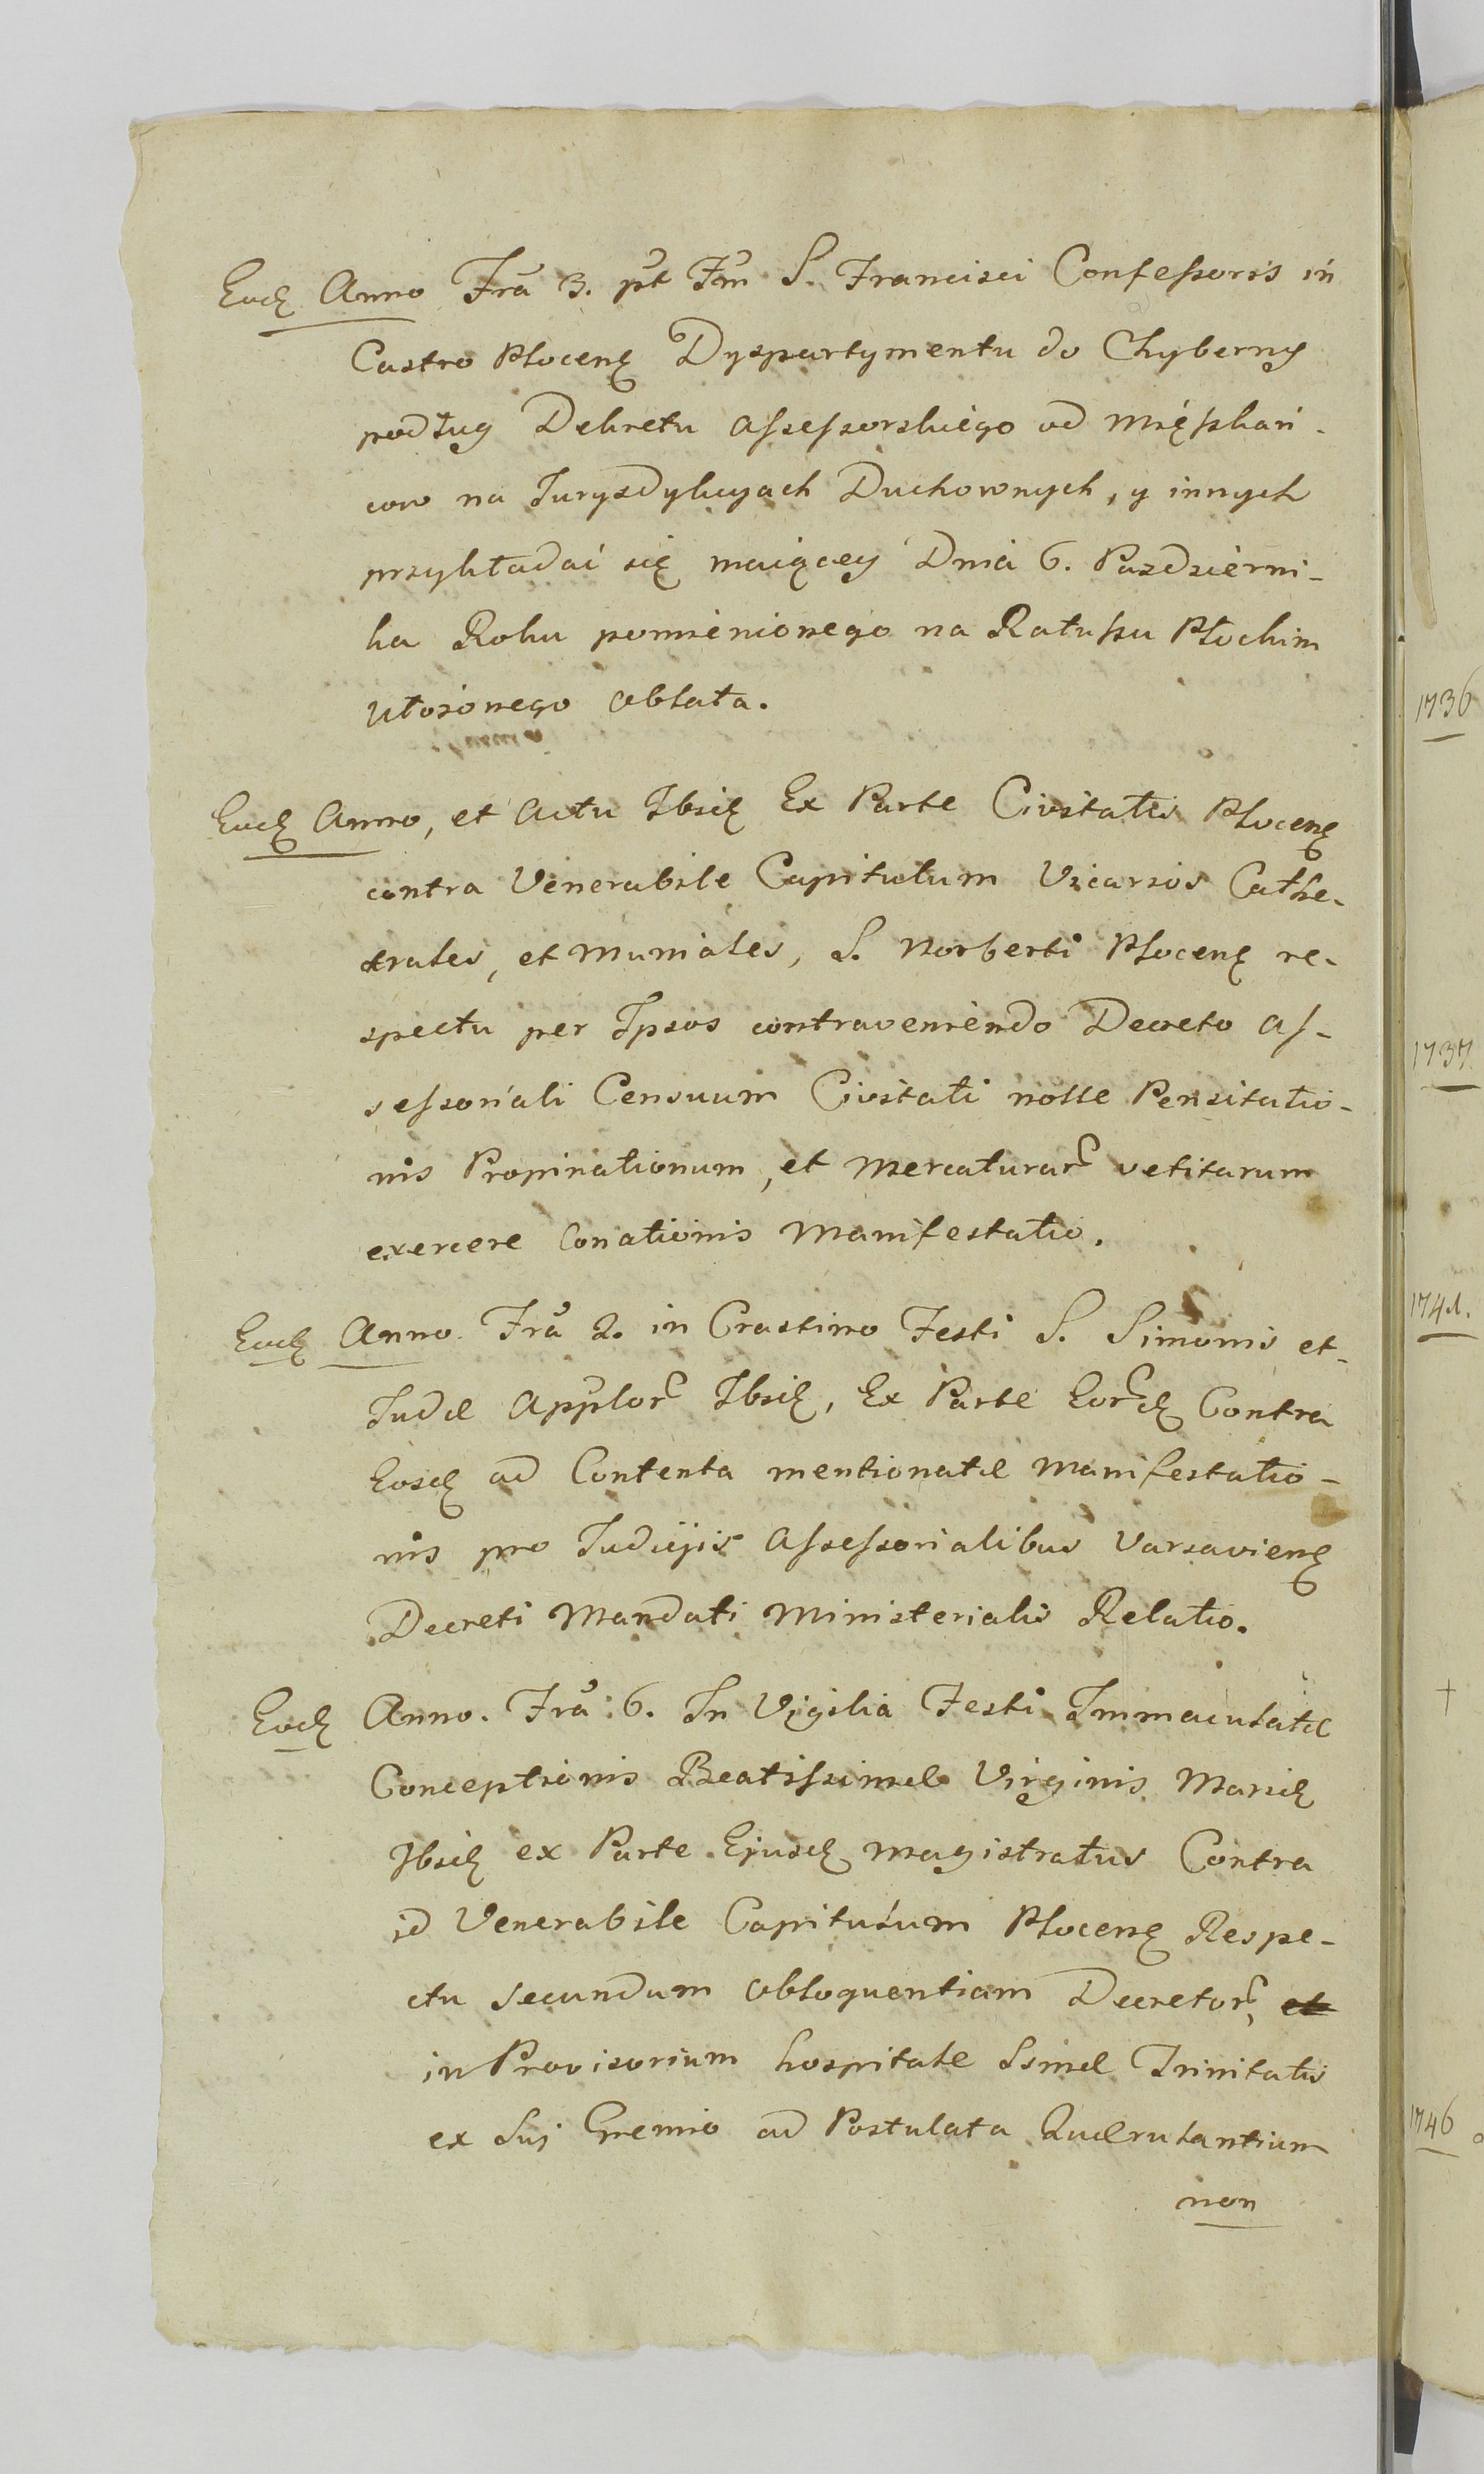 Eodẽ Anno Fra 3. pt Fm S. Francisci Confessoris in
Castro Plocenẽ Dyspartymentu do Chyberny
podług Dekretu Assessorskiego od Mięszkań-
cow na Jurysdykcyach Duchownych, y innych
przykładać się maiącey Dnia 6. Pazdzierni-
ka Roku pomienionego na Ratuszu Płockim
Ułożonego Oblata.
Eodẽ Anno, et Actu Ibidẽ Ex Parte Civitatis Plocenẽ
contra Venerabile Capitulum Vicarios Cathe-
drales, et Moniales, S. Norberti Plocenẽ re-
spectu per Ipsos contraveniendo Decreto As-
sessoriali Censuum Civitati nolle Pensitatio-
nis Propinationum, et Mercaturar vetitarum
exercere Conationis Manifestatio.
Eodẽ Anno. Fra 2. in Crastino Festi S. Simonis et
Judæ Applor Ibidẽ, Ex Parte Eordẽ Contra
Eosdẽ ad Contenta mentionatæ Manifestatio-
nis pro Judicijis Assessorialibus Varsavienẽ
Decreti Mandati Ministerialis Relatio.
Eodẽ Anno. Fra 6. In Vigilia Festi Immaculatæ
Conceptionis Beatissimæ Virginis Mariæ
Ibidẽ ex Parte Ejusdẽ Magistratus Contra
id Venerabile Capitulum Plocenẽ Respe-
ctu secundum Obloquentiam Decretor, et
in Provisorium hospitale Ssmæ Trinitatis
ex Sui Gremio ad Postulata Quærulantium
non
1736
1737
1741.
1746